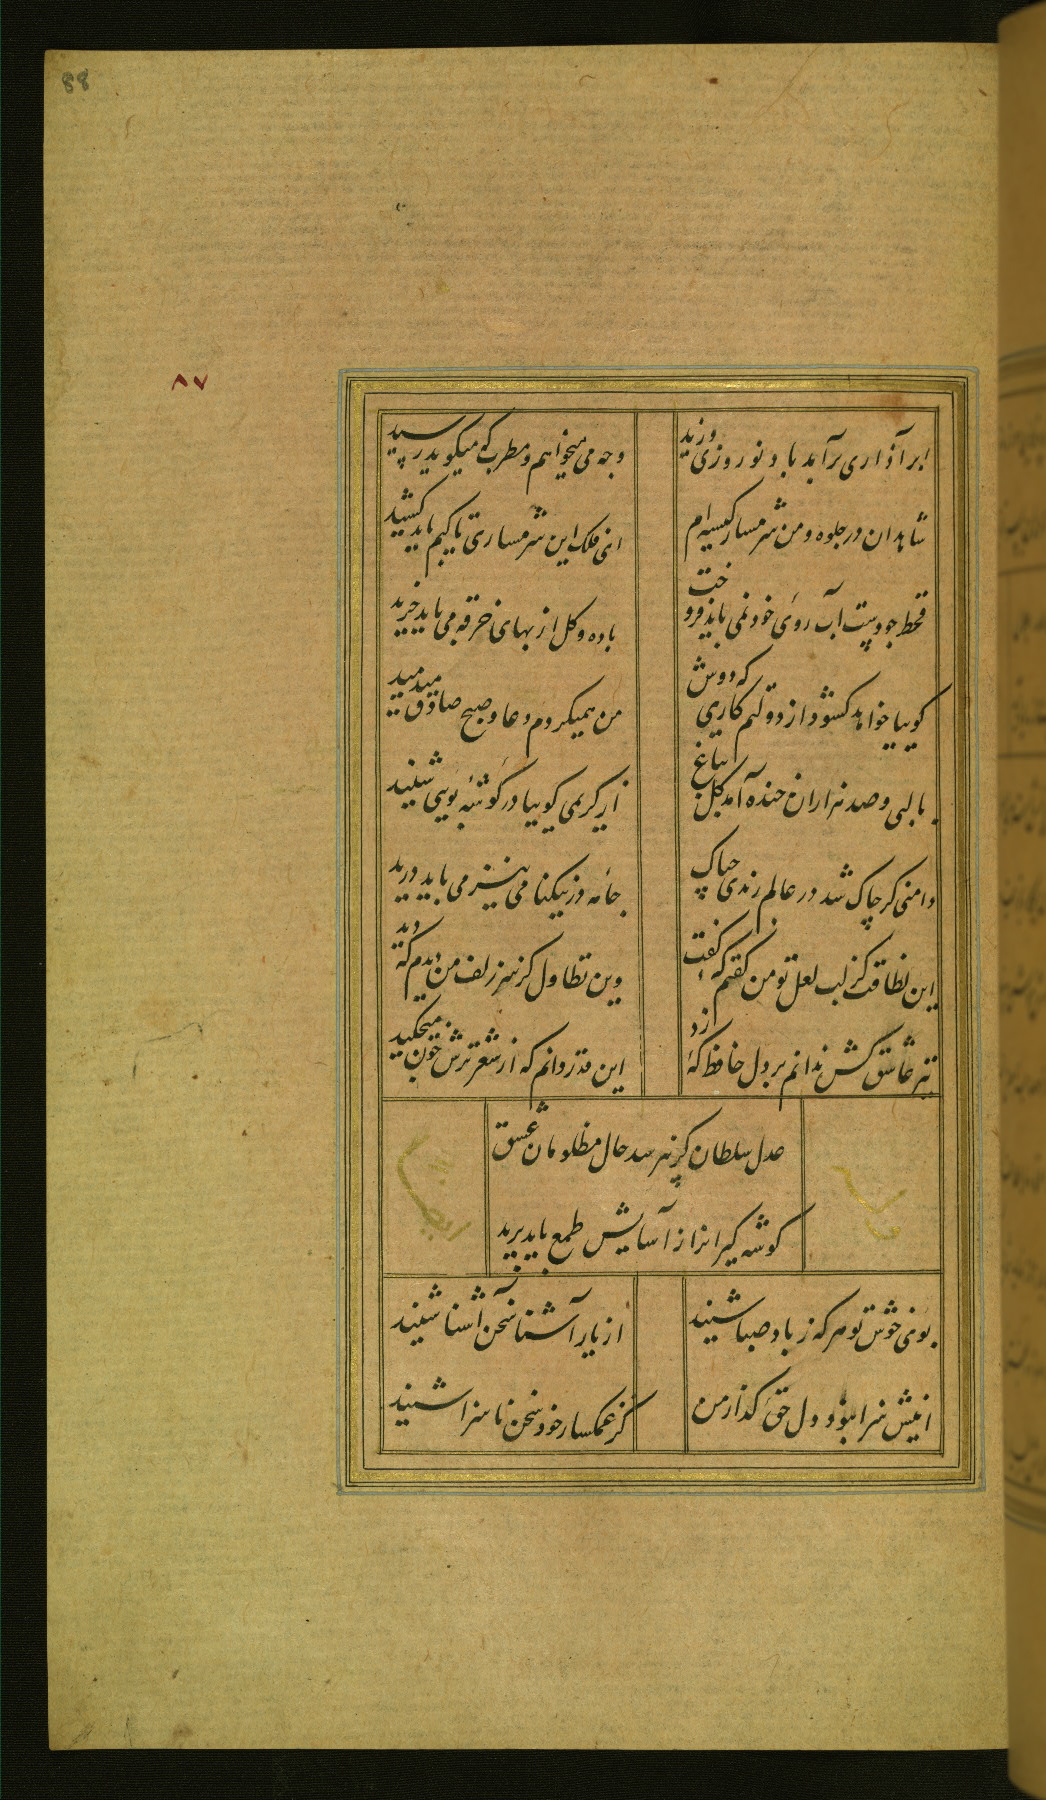 88
۸۷
ابر آذاری برآمد باد نوروزی وزید
وجه می میخواهم و مطرب که میکوید رسید
شاهدان در جلوه و من شرمسار کیسه ام
ای فلک این شرمساری تا کیم باید کشید
قحط جودست اب روی خود نمی باید فروخت
باده و کل از بهای خرقه می باید خرید
کوییا خواهد کشود از دولتم کاری که دوش
من همیکردم دعا و صبح صادق میدمید
با لبی و صد هزاران خنده آمد کل بباغ
از کریمی کوییا در کوشه بویی شنید
دامنی کر چاک شد در عالم رندی چه باک
جامه در نیکنامی نیز می باید درید
این لطافت کز لب لعل تو من کفتم که کفت
وین تطاول کز سر زلف من دیدم که دید
تیر عاشق کش ندانم بر دل حافظ که زد
این قدر دانم که از شعر ترش خون میچکید
عدل سلطان کر نپرسد حال مظلومان عشق
کوشه کیرانرا ز آسایش طمع باید برید
بوی خوش تو هرکه ز باد صبا شنید
از یار آشنا سخن اشنا شنید
اینش سزا نبود دل حق کذار من
کز غمکسار خود سخن ناسزا شنید